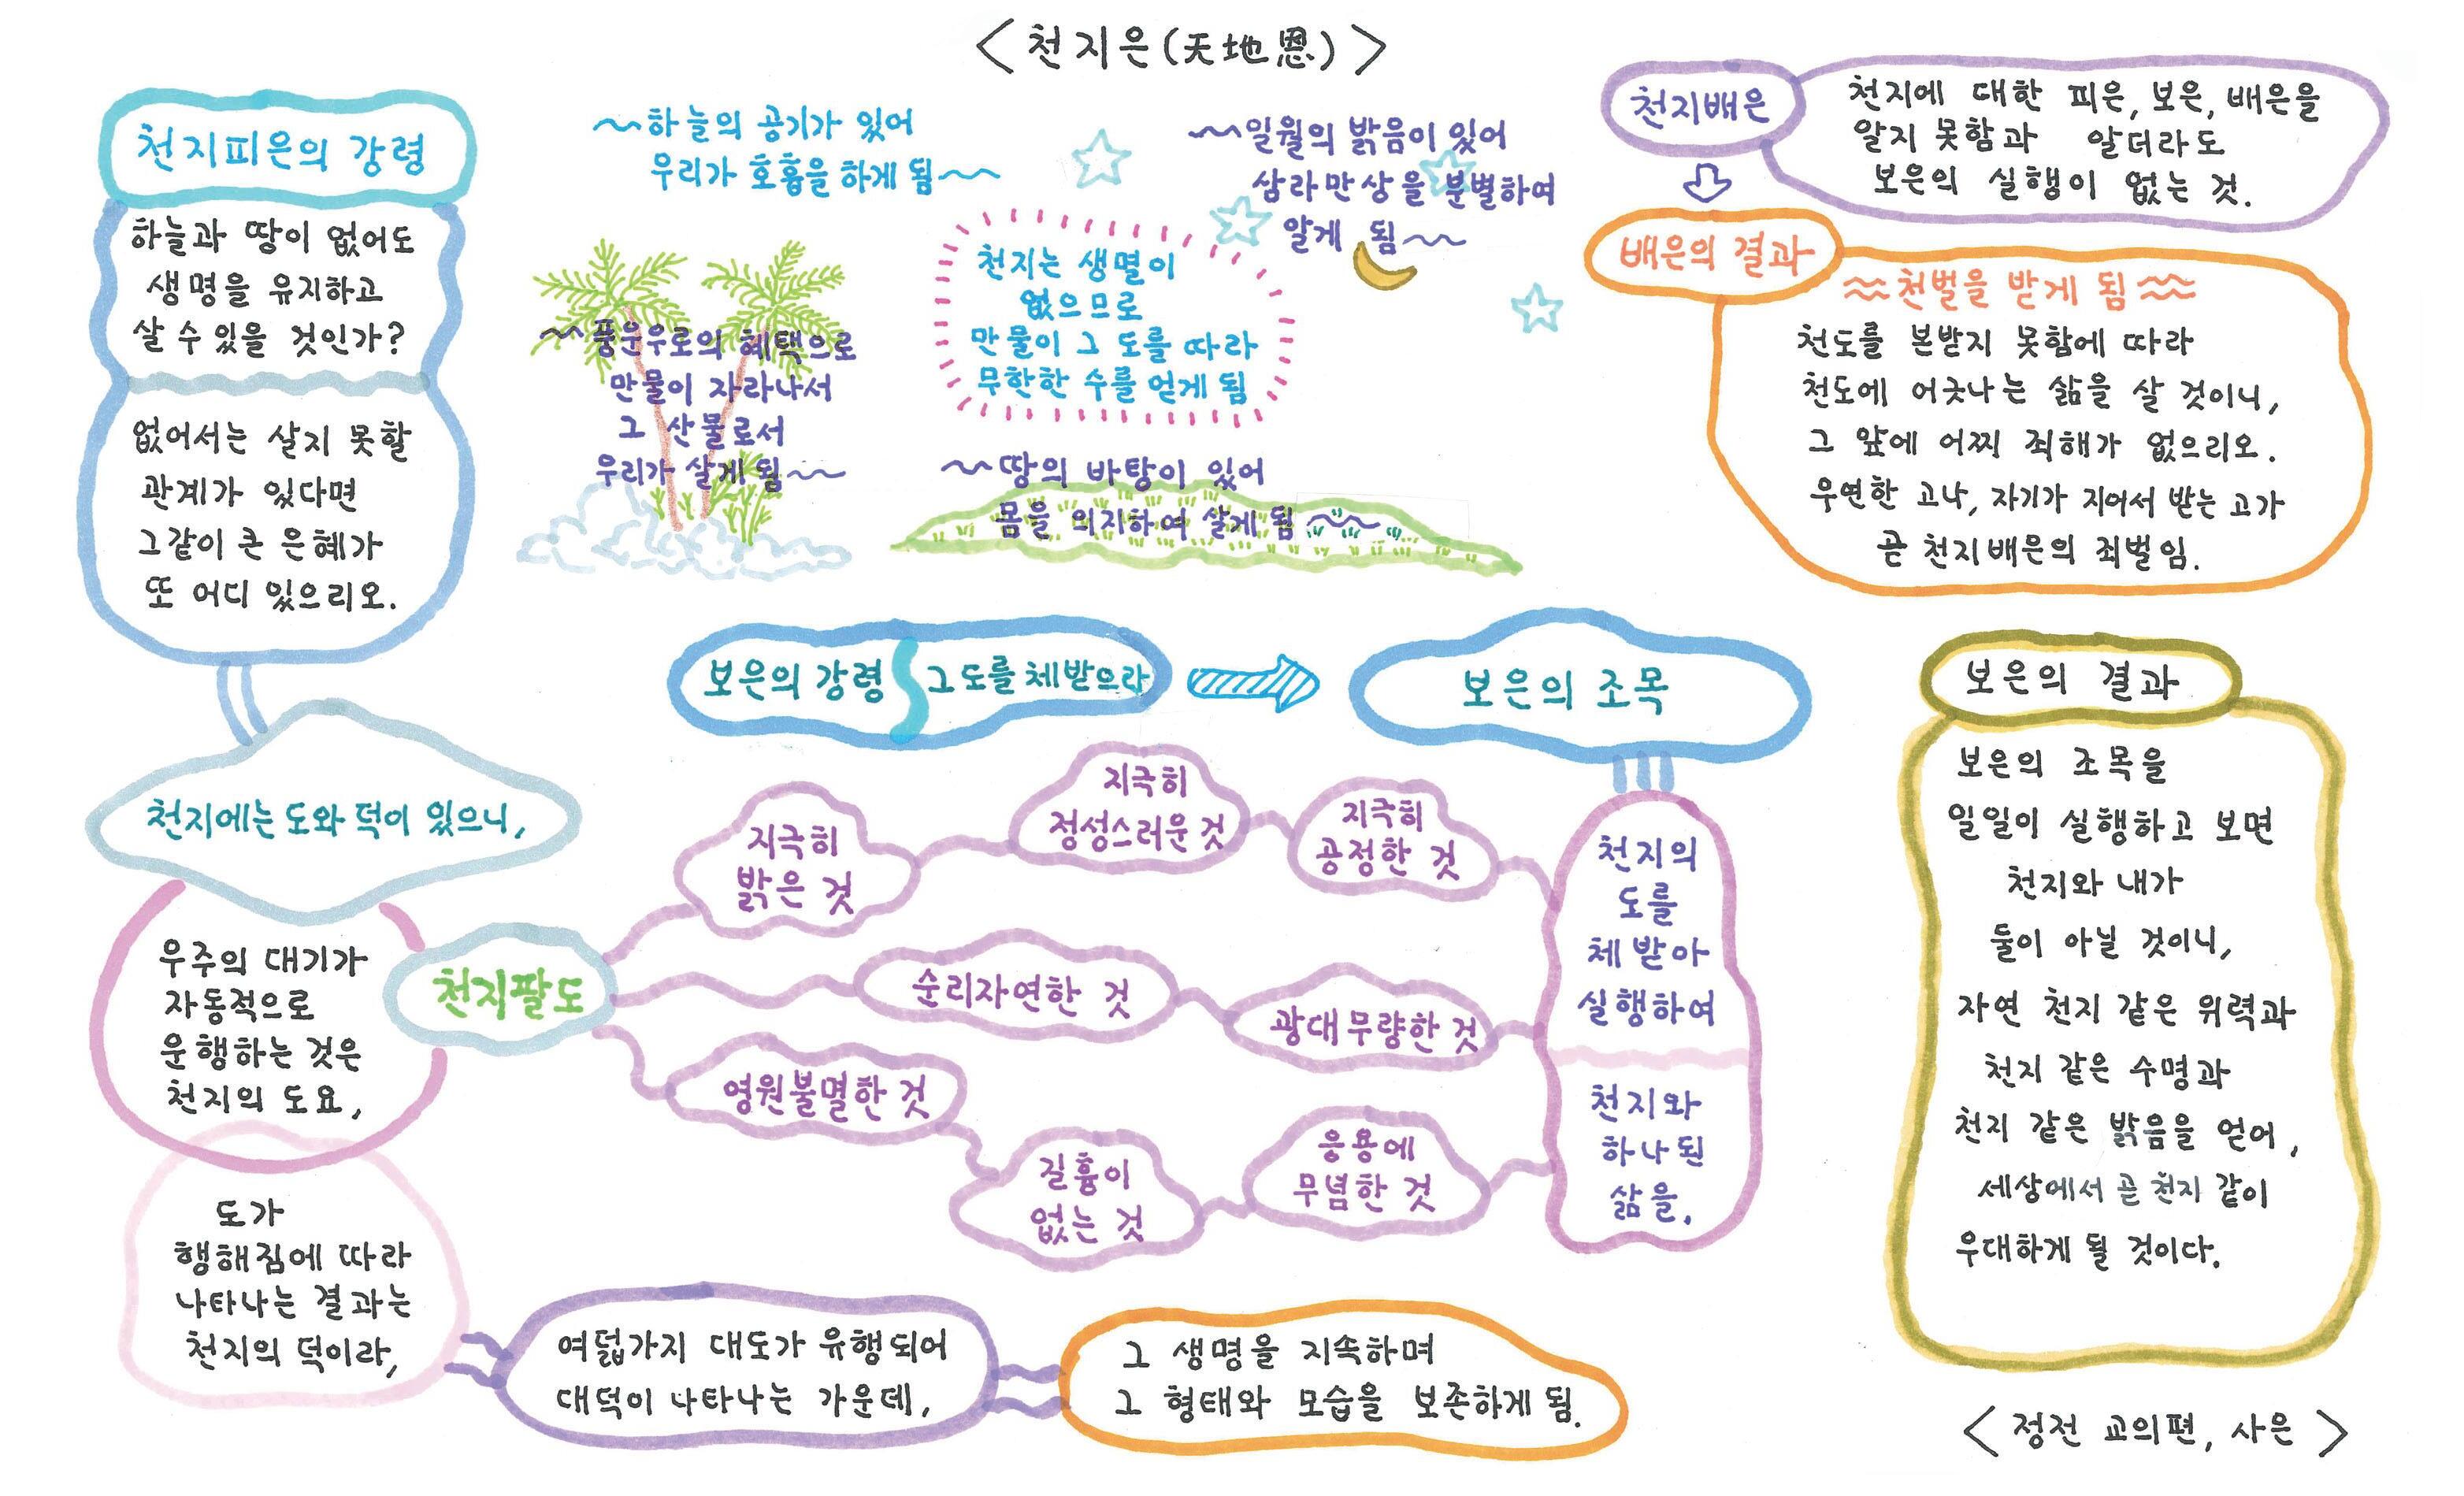 <천지은(天地恩)>
천지피은의 강령
하늘과 땅이 없어도
생명을 유지하고
살 수 있을 것인가?
없어서는 살지 못할
관계가 있다면
그같이 큰 은혜가
또 어디 있으리오.
~하늘의 공기가 있어
우리가 호흡을 하게 됨~~
~일월의 밝음이 있어
삼라만상을 분별하여
알게 됨~~
천지는 생멸이
없으므로
만물이 그 도를 따라
무한한 수를 얻게 됨
~풍운우로의 혜택으로
만물이 자라나서
그 산물로서
우리가 살게 됨~~
~땅의 바탕이 있어
몸을 의지하여 살게 됨~~
천지배은
천지에 대한 피은, 보은, 배은을
알지 못함과 알더라도
보은의 실행이 없는 것.
배은의 결과
천벌을 받게 됨
천도를 본받지 못함에 따라
천도에 어긋나는 삶을 살 것이니,
그 앞에 어찌 죄해가 없으리오.
우연한 고나, 자기가 지어서 받는 고가
곧 천지배은의 죄벌임.
천지에는 도와 덕이 있으니,
우주의 대기가
자동적으로
운행하는 것은
천지의 도요,
도가
행해짐에 따라
나타나는 결과는
천지의 덕이라,
여덟가지 대도가 유행되어
대덕이 나타나는 가운데,
그 생명을 지속하며
그 형태와 모습을 보존하게 됨.
보은의 강령
그 도를 체받으라
보은의 조목
천지팔도
지극히
밝은 것
지극히
정성스러운 것
지극히
공정한 것
순리자연한 것
광대무량한 것
영원불멸한 것
길흉이
없는 것
응용에
무념한 것
천지의
도를
체받아
실행하여
천지와
하나된
삶을,
보은의 결과
보은의 조목을
일일이 실행하고 보면
천지와 내가
둘이 아닐 것이니,
자연 천지 같은 위력과
천지 같은 수명과
천지 같은 밝음을 얻어,
세상에서 곧 천지 같이
우대하게 될 것이다.
<정전 교의편, 사은>